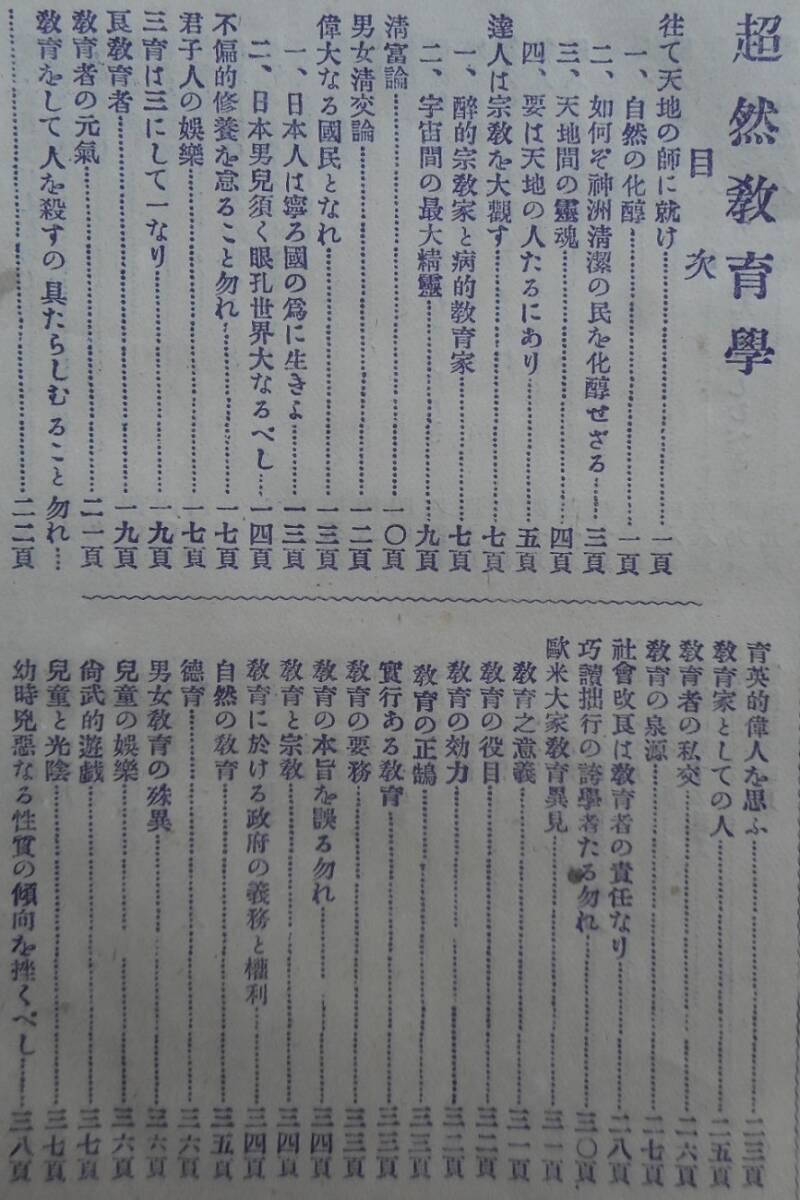 超然教育學
目次
往て天地の師に就け……一頁
一、自然の化醇……一頁
二、如何ぞ神洲清潔の民を化醇せざる……三頁
三、天地間の靈魂……四頁
四、要は天地の人たるにあり……五頁
達人は宗教を大觀す……七頁
一、醉的宗教家と病的教育家……七頁
二、宇宙間の最大精靈……九頁
清富論……一〇頁
男女清交論……一二頁
偉大なる國民となれ……一三頁
一、日本人は寧ろ國の爲に生きよ……一三頁
二、日本男兒須く眼孔世界大なるべし……一四頁
不偏的修養を怠ること勿れ……一七頁
君子人の娯樂……一七頁
三育は三にして一なり……一九頁
良教育者……一九頁
教育者の元氣……二一頁
教育をして人を殺すの具たらしむること勿れ……
……二二頁
育英的偉人を思ふ……二三頁
教育家としての人……二五頁
教育者の私交……二六頁
教育の泉源……二七頁
社會改良は教育者の責任なり……二八頁
巧讀拙行の誇學者たる勿れ……三〇頁
歐米大家教育異見……三一頁
教育之意義……三一頁
教育の役目……三二頁
教育の効力……三二頁
教育の正鵠……三三頁
實行ある教育……三三頁
教育の要務……三三頁
教育の本旨を誤る勿れ……三四頁
教育と宗教……三四頁
教育に於ける政府の義務と權利……三四頁
自然の教育……三五頁
德育……三六頁
男女教育の殊異……三六頁
兒童の娯樂……三六頁
尙武的遊戯……三七頁
兒童と光陰……三七頁
幼時兇惡なる性質の傾向を挫くべし……三八頁